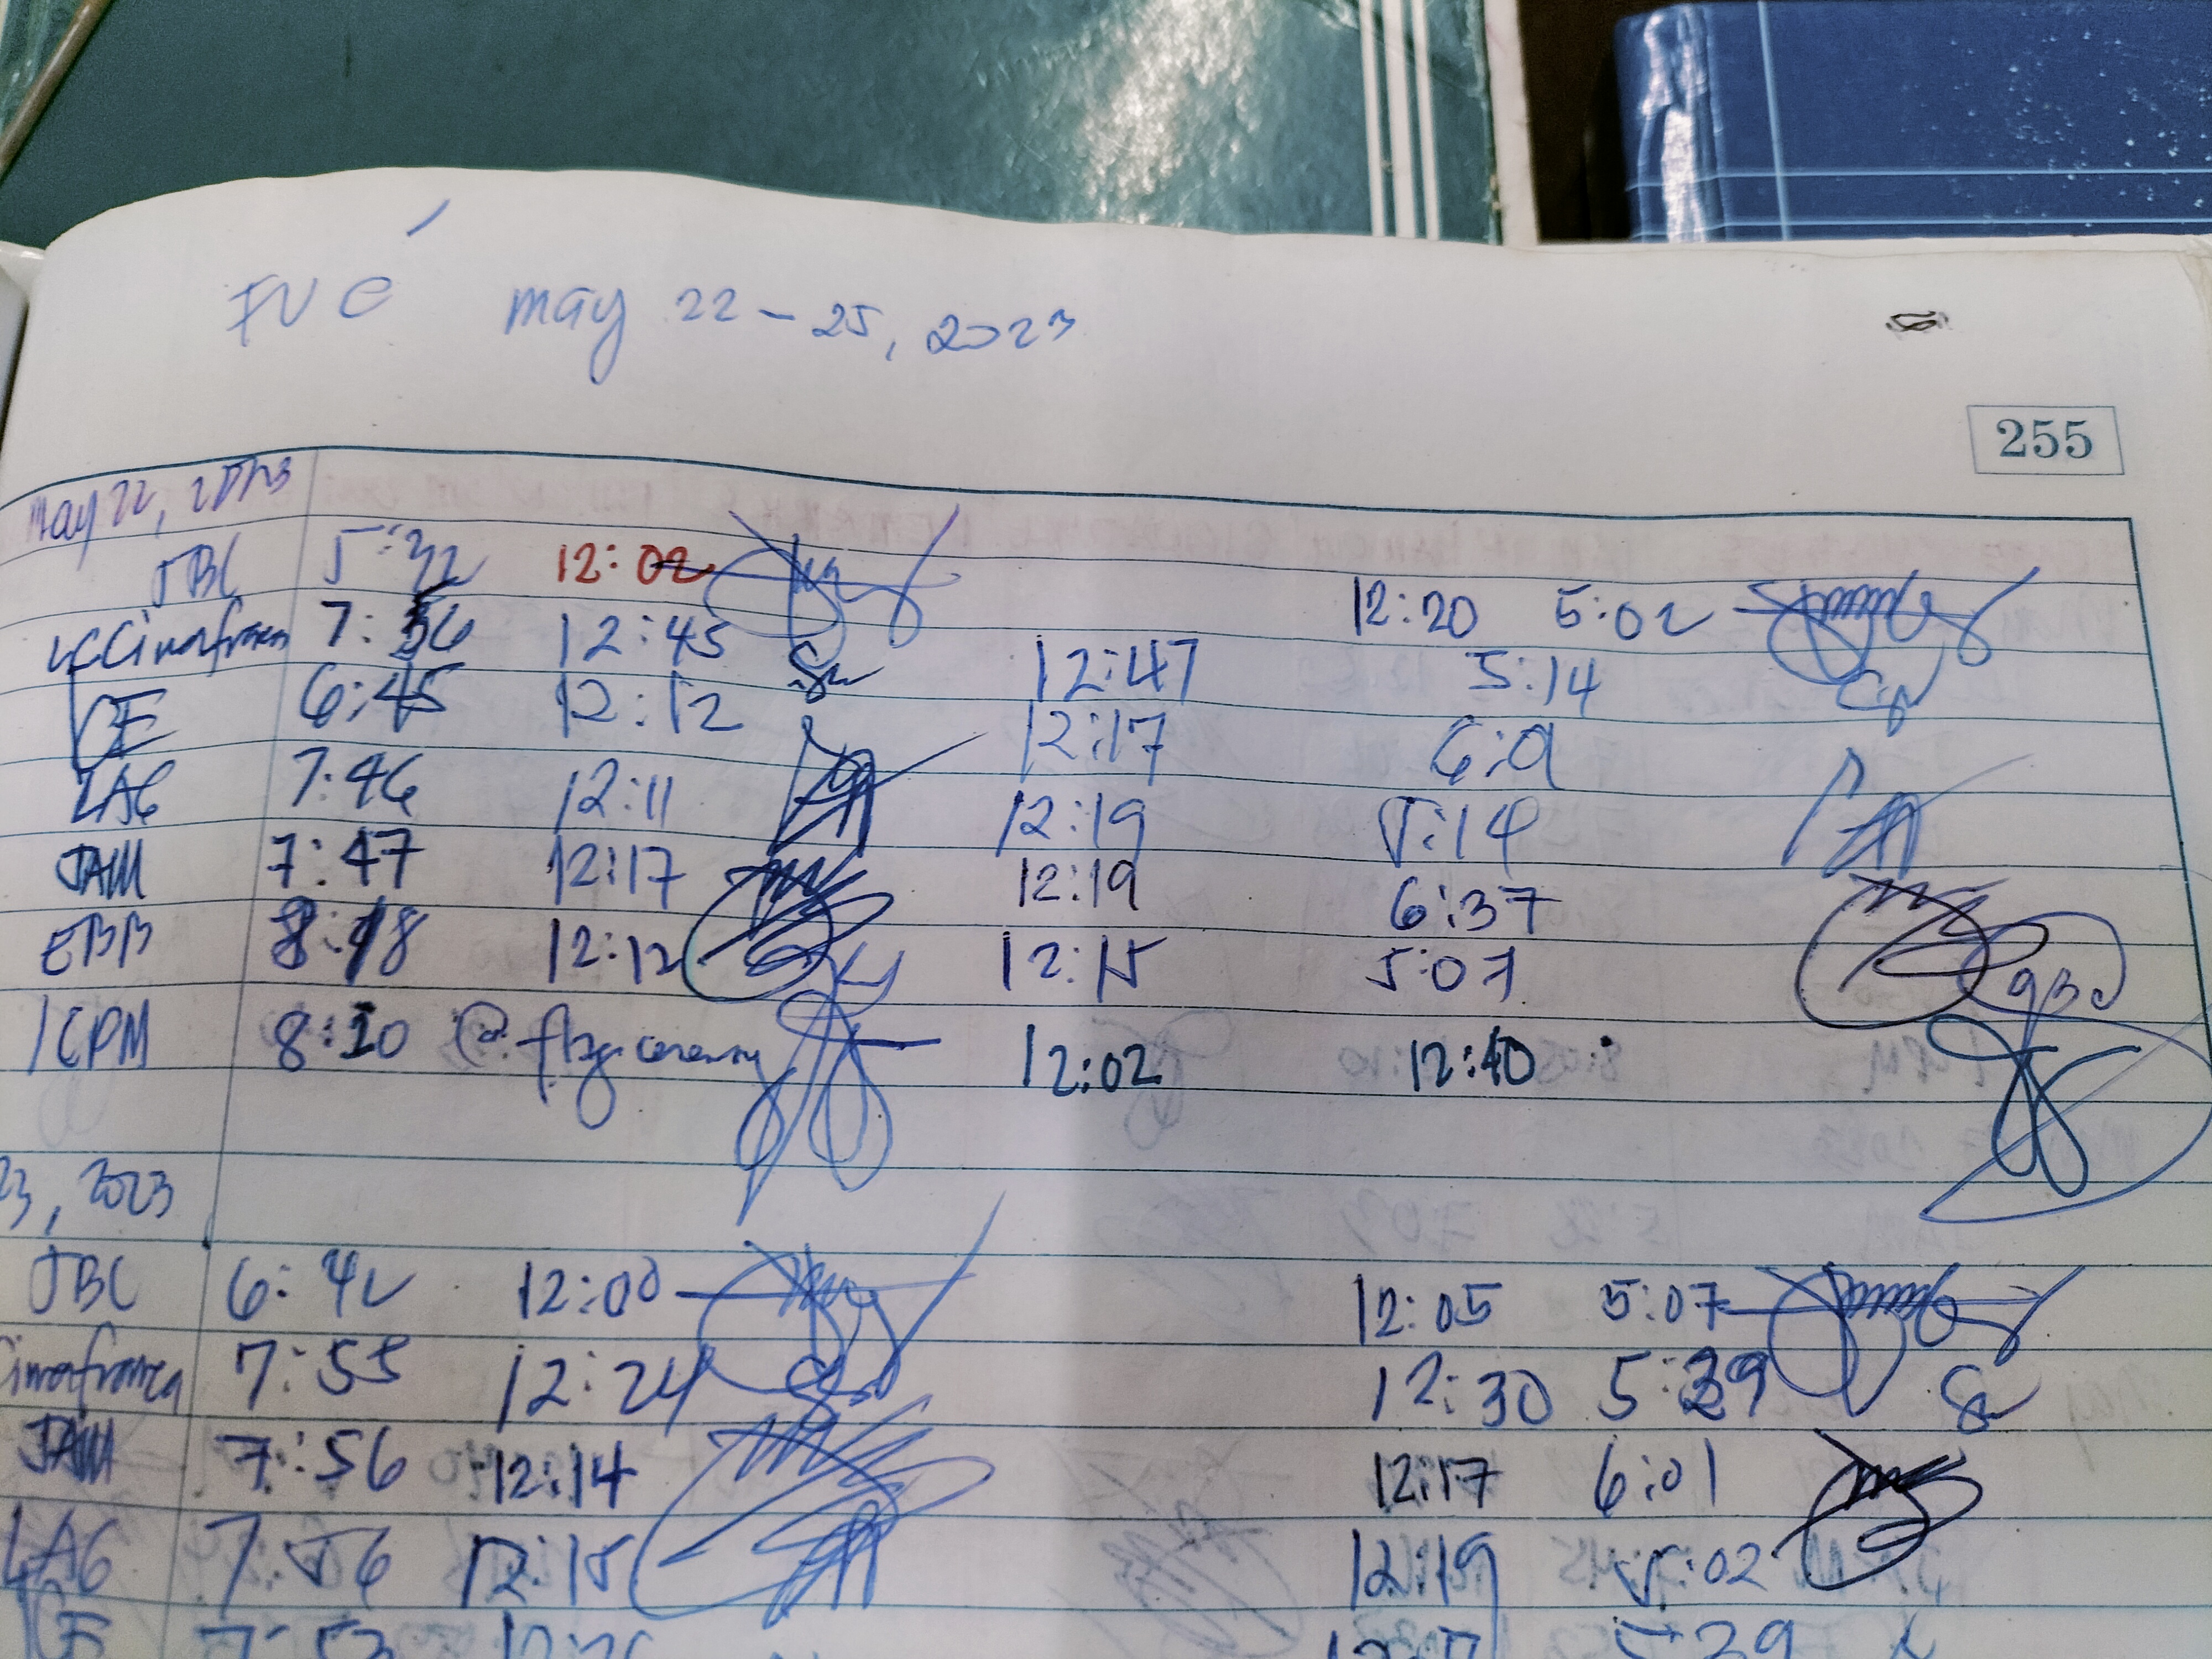 FVE May 22-25, 2023
255
May 22, 2023
JBC 5:32 12:02 12:20 5:02
7:56 12:45 12:47 5:14
6:45 12:12 12:17 6:01
LAG 7:46 12:11 12:19 5:14
JAM 7:47 12:17 12:19 6:37
EBB 8:18 12:12 12:15 5:07
ICPM 8:20 @ flag ceremony 12:02 12:40
23, 2023
JBC 6:42 12:00 12:05 5:07
7:55 12:24 12:30 5:39
JAM 7:56 12:14 12:17 6:01
LAG 7:56 12:15 12:19 5:02
7:53 5:39